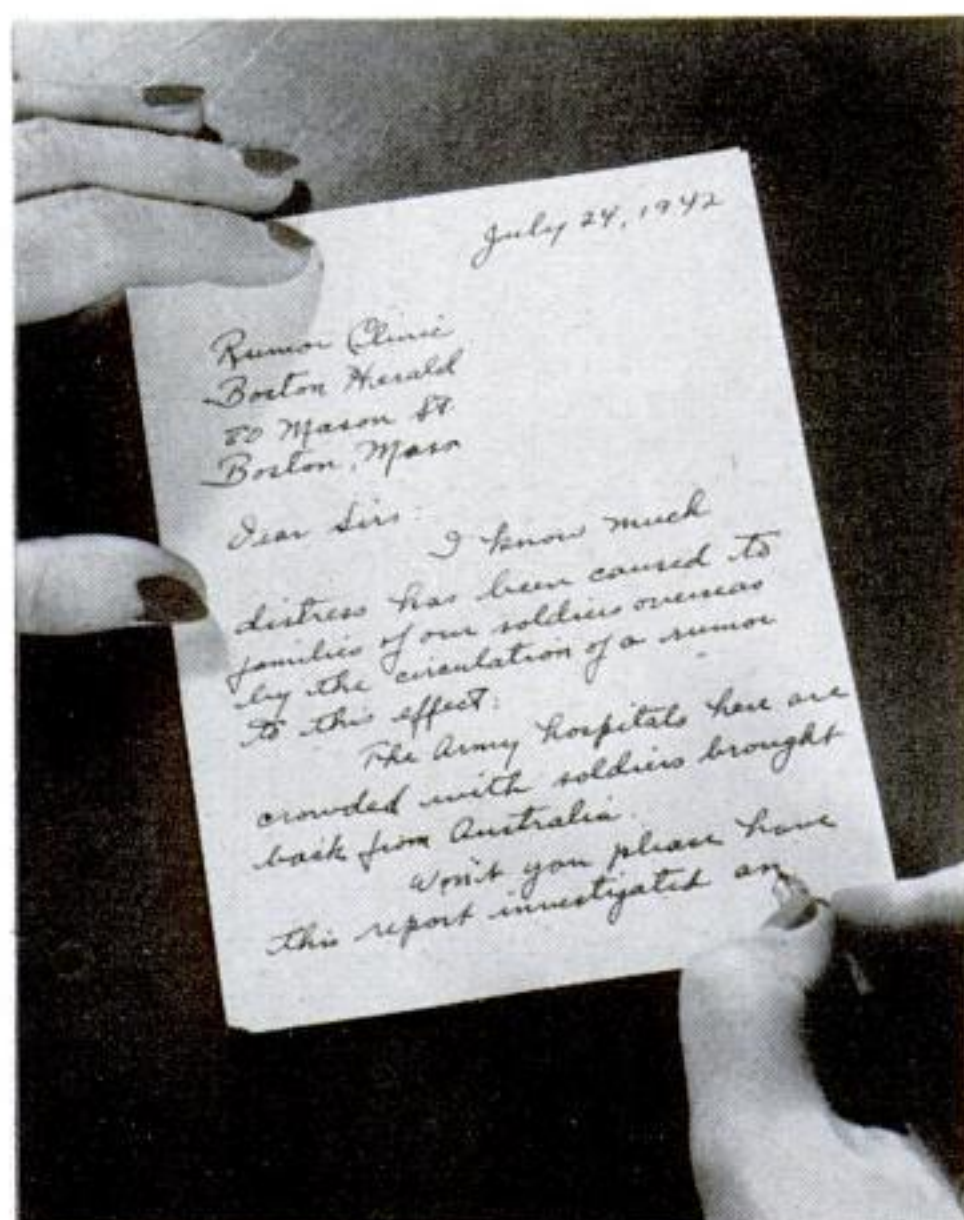 July 24, 1942
Rumor Clinic
Boston Herald
80 Mason St
Boston, Mass
Dear Sirs:
I know much
distress has been caused to
families of our soldiers overseas
by the circulation of a rumor
to this effect:
The Army hospitals here are
crowded with soldiers brought
back from Australia.
Won't you please have
this report investigated an